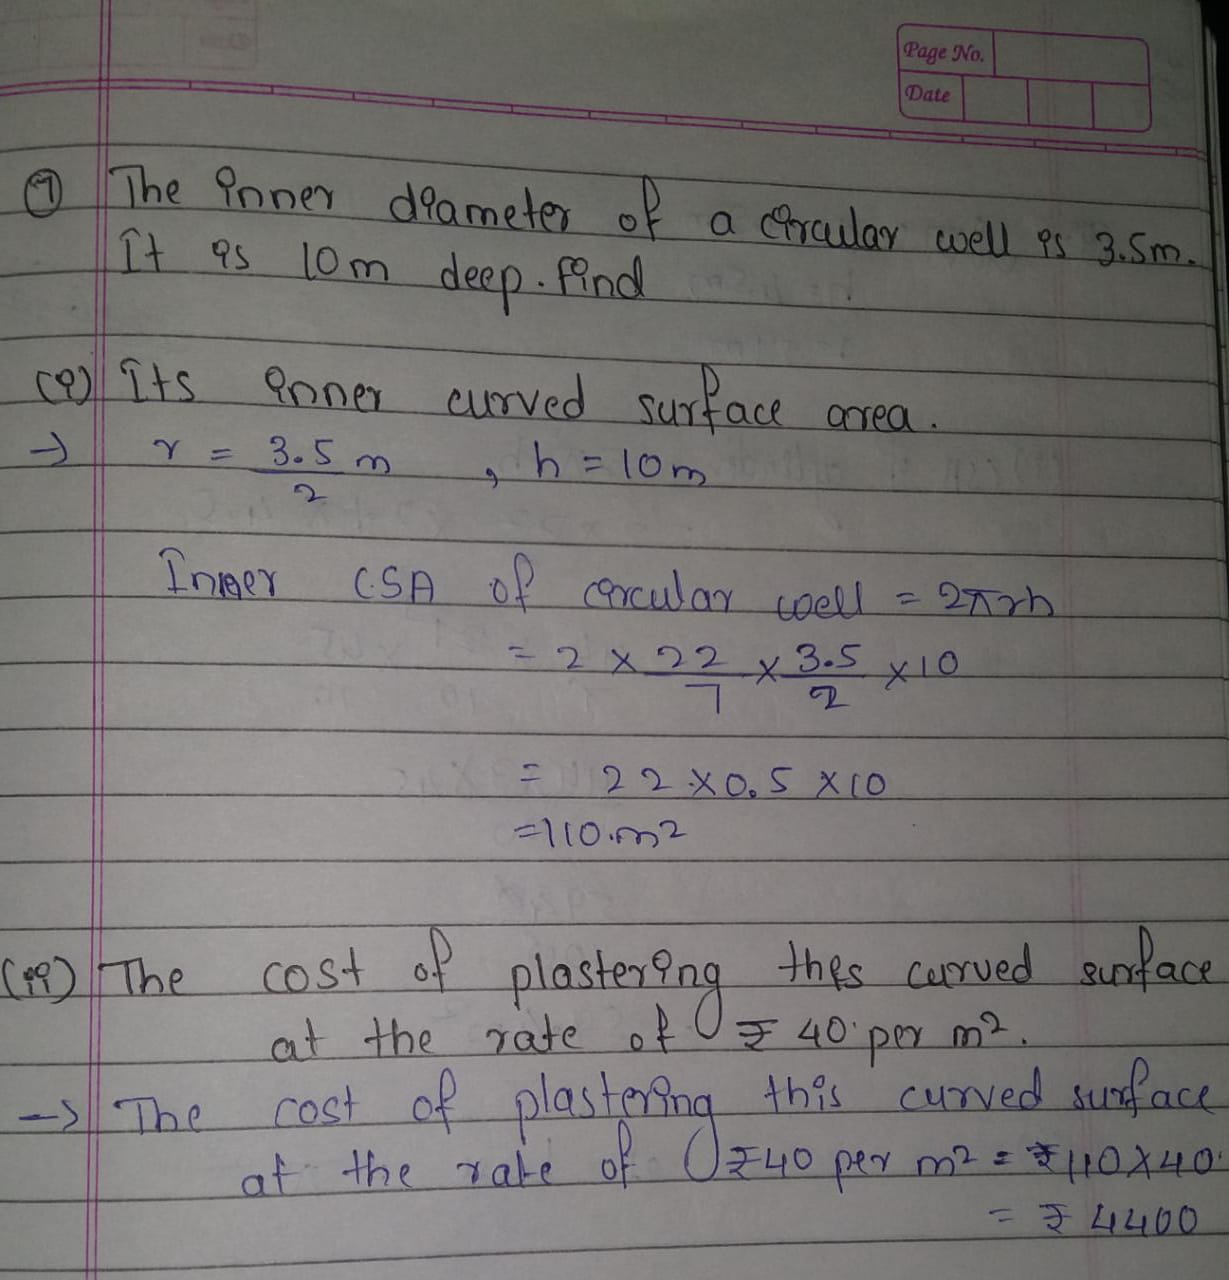 Page No.
Date
⑦ The inner diameter of a circular well is 3.5m.
It is 10m deep. find
(i) Its inner curved surface area.
→ r = 3.5 m / 2 , h = 10m
Inner CSA of circular well = 2πrh
= 2 × 22/7 × 3.5/2 × 10
= 22 × 0.5 × 10
= 110 m²
(ii) The cost of plastering this curved surface
at the rate of ₹ 40 per m².
→ The cost of plastering this curved surface
at the rate of ₹40 per m² = ₹110×40
= ₹ 4400